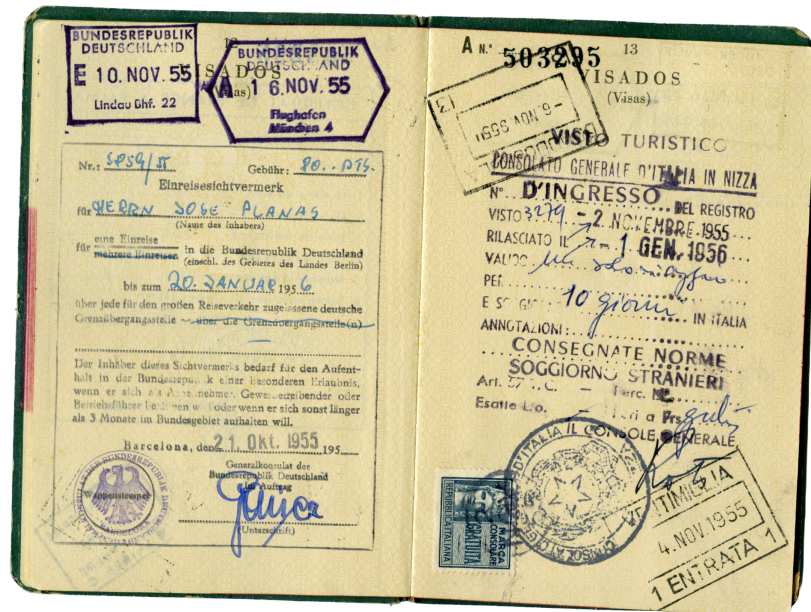 BUNDESREPUBLIK
DEUTSCHLAND
E 10. NOV. 55
Lindau Bhf. 22
BUNDESREPUBLIK
DEUTSCHLAND
A 16. NOV. 55
Flughafen
München 4
VISADOS
(Visas)
Nr.: Gebühr: 80.- PTS.
Einreisesichtvermerk
für HERRN JOSE PLANAS
(Name des Inhabers)
für eine Einreise
mehrere Einreisen in die Bundesrepublik Deutschland
(einschl. des Gebietes des Landes Berlin)
bis zum 20. JANUAR 1956
über jede für den großen Reiseverkehr zugelassene deutsche
Grenzübergangsstelle – über die Grenzübergangsstelle(n)
Der Inhaber dieses Sichtvermerks bedarf für den Aufent-
halt in der Bundesrepublik einer besonderen Erlaubnis,
wenn er sich als Arbeitnehmer, Gewerbetreibender oder
Betriebsführer betätigen will oder wenn er sich sonst länger
als 3 Monate im Bundesgebiet aufhalten will.
Barcelona, den 21. Okt. 1955 195
Generalkonsulat der
Bundesrepublik Deutschland
Im Auftrag
Wappenstempel
(Unterschrift)
A N.° 503295 13
VISADOS
(Visas)
-6. NOV 1955
VISTO TURISTICO
CONSOLATO GENERALE D'ITALIA IN NIZZA
N° D'INGRESSO DEL REGISTRO
VISTO 3279 - 2 NOVEMBRE 1955
RILASCIATO IL 1 GEN. 1956
VALIDO
PER
E SOGGIORNO 10 giorni IN ITALIA
ANNOTAZIONI:
CONSEGNATE NORME
SOGGIORNO STRANIERI
Art. 27 T.C.
Esatte
IL CONSOLE GENERALE
MARCA
CONSOLARE
GRATUITA
REPUBBLICA ITALIANA
VENTIMIGLIA
4. NOV. 1955
1 ENTRATA 1